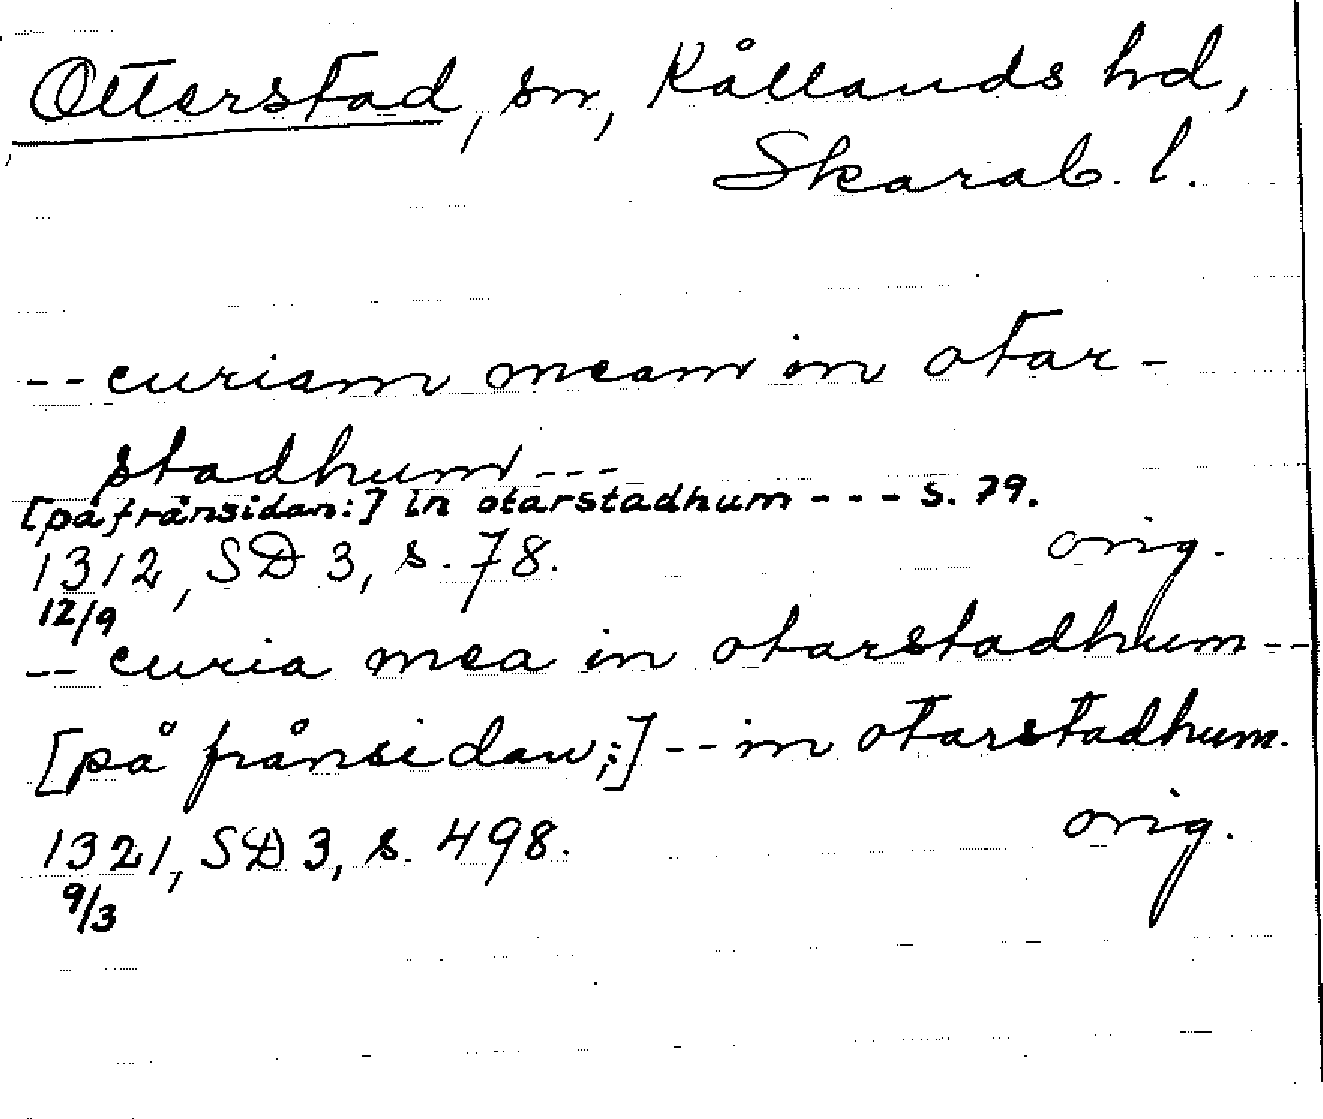 Otterstad, sn, Kållands hd,
Skarab. l.
-- curiam meam in otar-
stadhum ---
[på frånsidan:] in otarstadhum --- s. 79.
1312, SD 3, s. 78. orig.
12/9
-- curia mea in otarstadhum --
[på frånsidan;] -- in otarstadhum.
1321, SD 3, s. 498. orig.
9/3